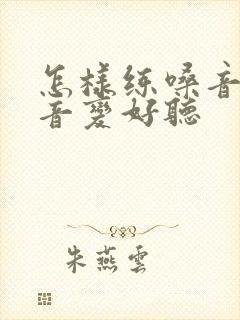 怎様练嗓音
音變好聽
朱燕雲